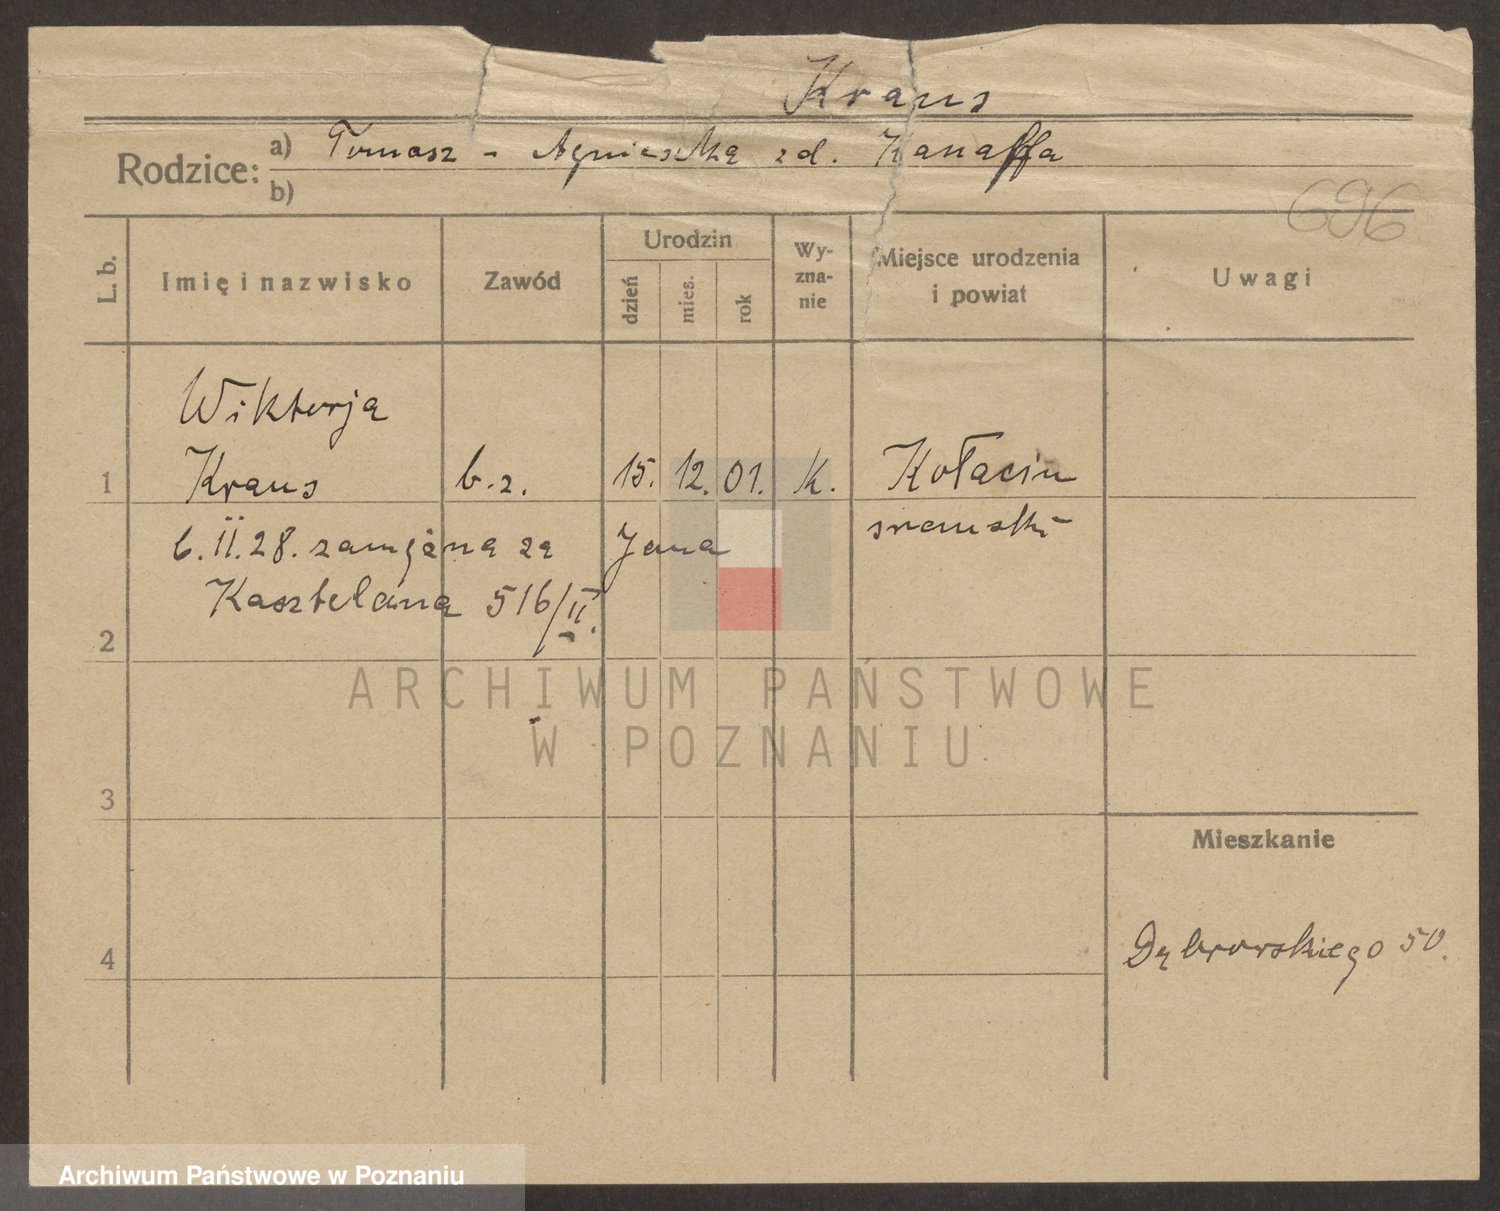 Kraus
Rodzice: a) Tomasz - Agnieszka zd. Kanaffa
b)
696
L. b.
Imię i nazwisko
Zawód
Urodzin
dzień
mies.
rok
Wy-
zna-
nie
Miejsce urodzenia
i powiat
Uwagi
Wiktorja
1 Kraus b.z. 15. 12. 01. K. Kołacin
śremski
6.II.28. zamężna za Jana
Kasztelana 516/II.
2
3
4
Mieszkanie
Dąbrowskiego 50.
ARCHIWUM PAŃSTWOWE
W POZNANIU
Archiwum Państwowe w Poznaniu